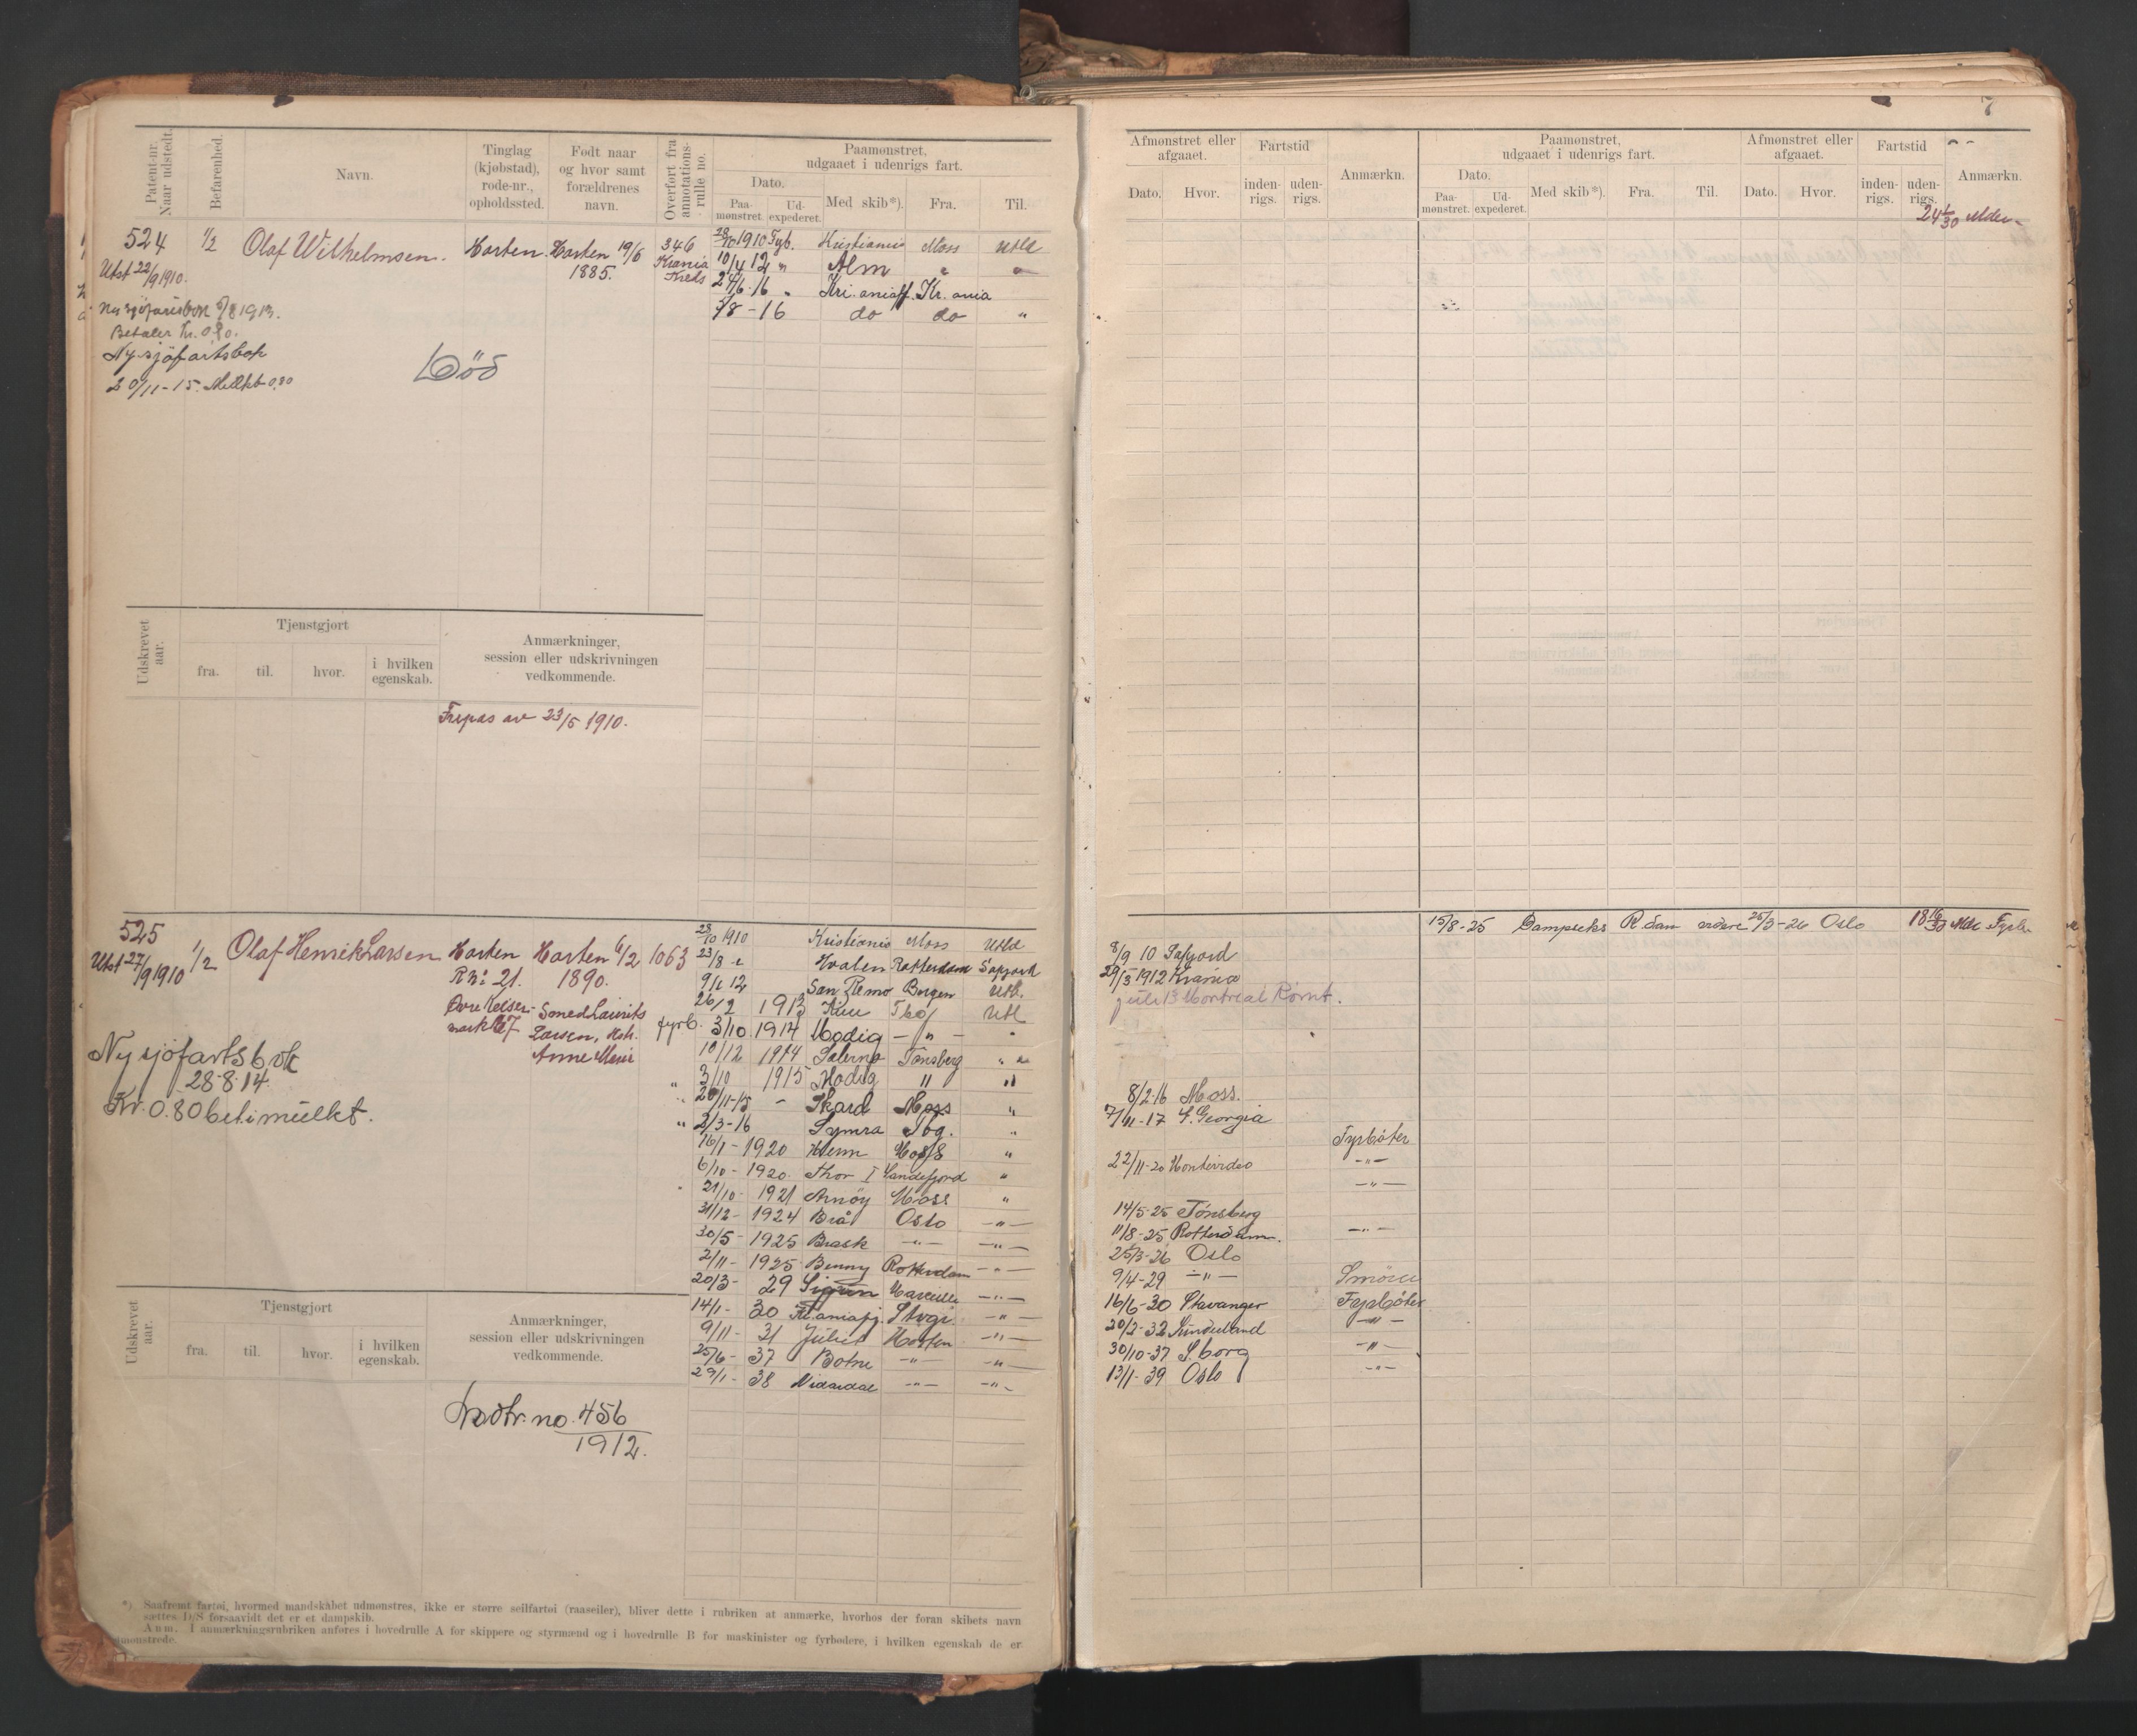 7
Patent-nr.
Naar udstedt.
Befarenhed.
Navn.
Tinglag
(kjøbstad),
rode-nr.,
opholdssted.
Født naar
og hvor samt
forældrenes
navn.
Overført fra
annotations-
rulle no.
Paamønstret,
udgaaet i udenrigs fart.
Dato.
Paa-
mønstret.
Ud-
expederet.
Med skib*).
Fra.
Til.
524 1/2 Olaf Wilhelmsen. Horten. Horten 19/6 346
Utst 22/9 1910. 1885. Krania
Kreds
28/10 1910 Fyb. Kristiania Moss Utld
10/4 12 " Alm " "
24/6 16 " Kri.aniafj. Kr.ania
5/8 - 16 do do "
Ny sjøfartsbok 1913.
Betaler kr. 0,80.
Ny sjöfartsbok
20/11-15. Mulkt 0,80
Död
Udskrevet
aar.
Tjenstgjort
fra.
til.
hvor.
i hvilken
egenskab.
Anmærkninger,
session eller udskrivningen
vedkommende.
Fripas av 23/5 1910.
525 1/2 Olaf Henrik Larsen Horten Horten 6/2 1063
Utst 27/9 1910 R Nr 21. 1890.
Laurits
Larsen,
Anne Marie
Ny sjöfartsbok
28-8-14.
Kr. 0.80 bet i mulkt.
28/10 1910 Kristiania Moss Utld
23/8 Hvalen Rotterdam S'afjord
9/1 12 San Remo Bergen Utl.
26/2 1913 Utl
fyrb. 3/10 1914 Modig - " - "
10/12 1914 Salerno Tønsberg "
" 3/10 1915 Modig " "
" 20/11-15 - Skard Moss "
" 2/3-16 Symra Tbg. "
16/1 - 1920 Moss "
6/10 - 1920 Thor I Sandefjord "
21/10 - 1921 Arnöy Moss "
31/12 - 1924 Brå Oslo -"-
30/5 - 1925 Brask -"- -"-
2/11 - 1925 Benny Rotterdam -"-
20/3 - 29 Sigrun Marseille -"-
14/1 - 30 Kr.aniafj. Stvgr. -"-
9/11 - 31 Juliet Horten -"-
25/6 - 37 Botne -"- -"-
29/1 - 38 Vidardal -"- -"-
Udskrevet
aar.
Tjenstgjort
fra.
til.
hvor.
i hvilken
egenskab.
Anmærkninger,
session eller udskrivningen
vedkommende.
Indtr. no. 456
1912.
*) Saafremt fartøi, hvormed mandskabet udmønstres, ikke er større seilfartøi (raaseiler), bliver dette i rubriken at anmærke, hvorhos der foran skibets navn
sættes D/S forsaavidt det er et dampskib.
Anm. I anmærkningsrubriken anføres i hovedrulle A for skippere og styrmænd og i hovedrulle B for maskinister og fyrbødere, i hvilken egenskab de er
mønstrede.
Afmønstret eller
afgaaet.
Dato.
Hvor.
Fartstid
inden-
rigs.
uden-
rigs.
Anmærkn.
Paamønstret,
udgaaet i udenrigs fart.
Dato.
Paa-
mønstret.
Ud-
expederet.
Med skib*).
Fra.
Til.
Afmønstret eller
afgaaet.
Dato.
Hvor.
Fartstid
inden-
rigs.
uden-
rigs.
Anmærkn.
15/8-25 R.dam 25/3-26 Oslo 18 16/30 Mdr Fyrb.
8/9 10 Safjord
29/3 1912 Krania
juli 13 Montreal Rømt.
8/2 16 Moss.
7/11-17 S. Georgia
Fyrböter
22/11-20 Montevideo -"-
-"-
14/5-25 Tönsberg
11/8-25 Rotterdam. -"-
25/3-26 Oslo
9/4-29 -"- Smörer
16/6-30 Stavanger Fyrböter
20/2-32 Sunderland -"-
30/10-37 S.borg -"-
13/1-39 Oslo -"-